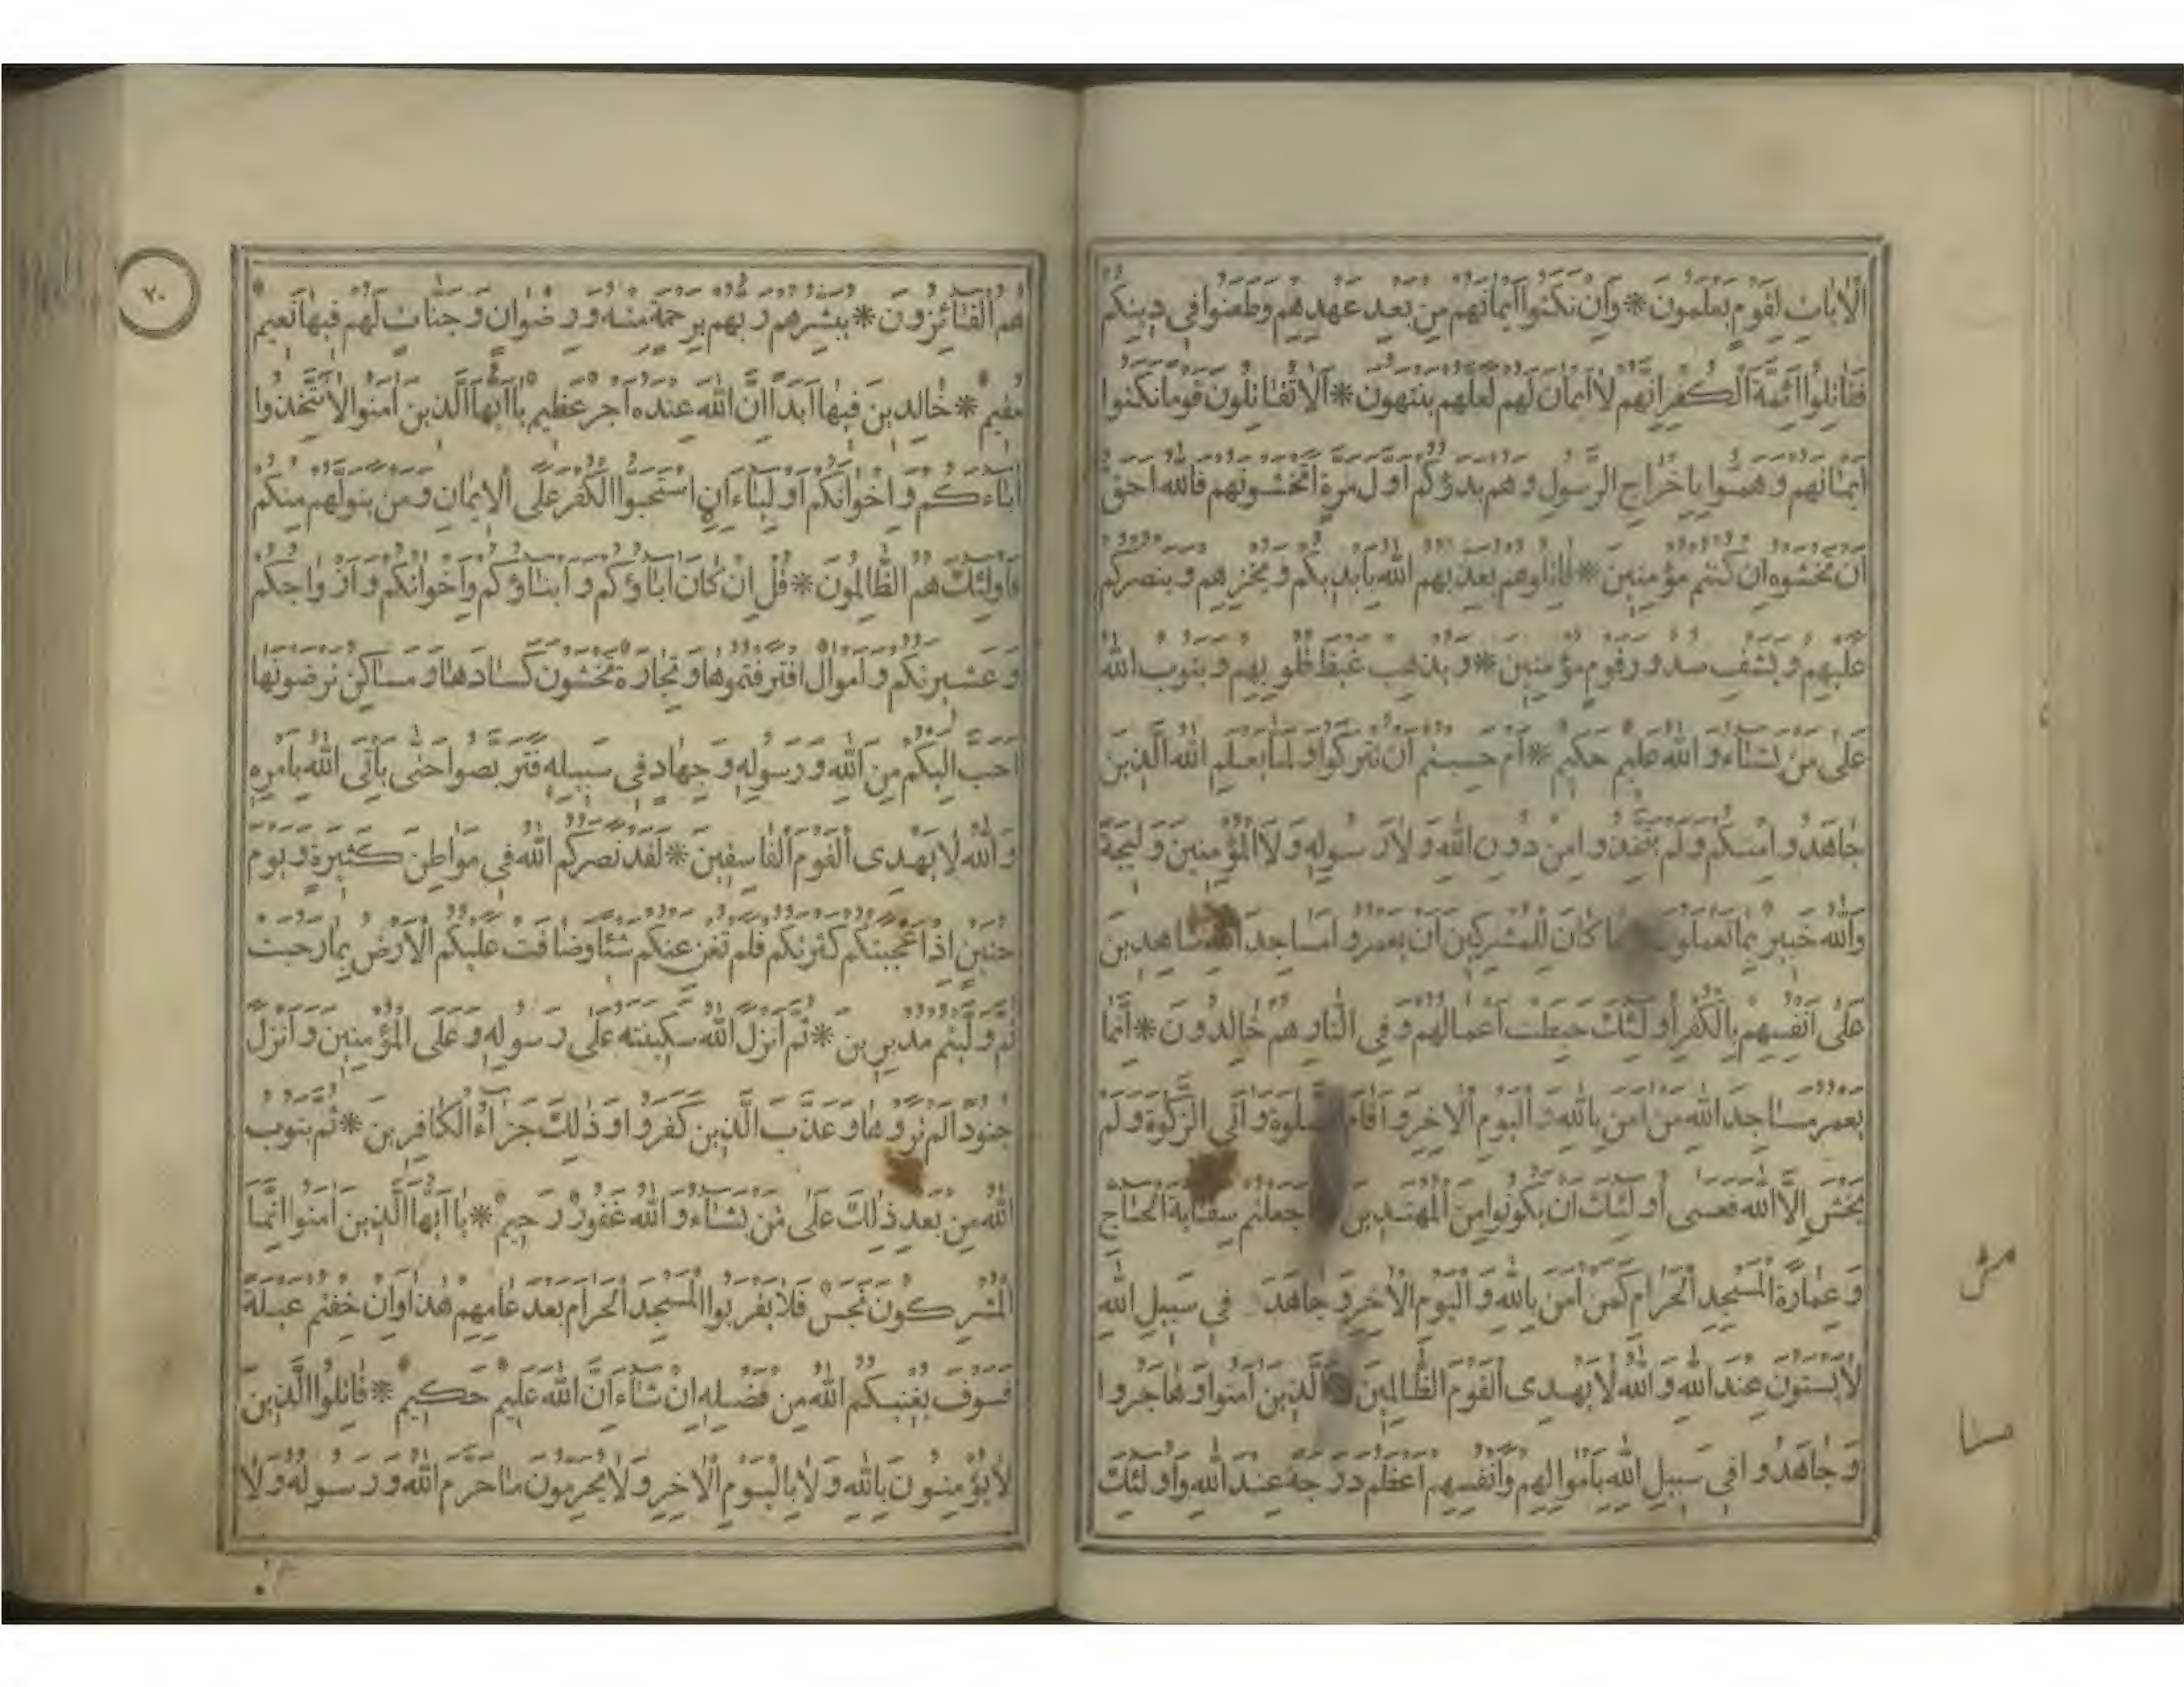 الْاٰيَاتِ لِقَوْمٍ يَعْلَمُونَ * وَاِنْ نَكَثُوا اَيْمَانَهُمْ مِنْ بَعْدِ عَهْدِهِمْ وَطَعَنُوا فِى دِينِكُمْ
فَقَاتِلُوا اَئِمَّةَ الْكُفْرِ اِنَّهُمْ لَا اَيْمَانَ لَهُمْ لَعَلَّهُمْ يَنْتَهُونَ * اَلَا تُقَاتِلُونَ قَوْمًا نَكَثُوا
اَيْمَانَهُمْ وَهَمُّوا بِاِخْرَاجِ الرَّسُولِ وَهُمْ بَدَؤُكُمْ اَوَّلَ مَرَّةٍ اَتَخْشَوْنَهُمْ فَاللّٰهُ اَحَقُّ
اَنْ تَخْشَوْهُ اِنْ كُنْتُمْ مُؤْمِنِينَ * قَاتِلُوهُمْ يُعَذِّبْهُمُ اللّٰهُ بِاَيْدِيكُمْ وَيُخْزِهِمْ وَيَنْصُرْكُمْ
عَلَيْهِمْ وَيَشْفِ صُدُورَ قَوْمٍ مُؤْمِنِينَ * وَيُذْهِبْ غَيْظَ قُلُوبِهِمْ وَيَتُوبُ اللّٰهُ
عَلٰى مَنْ يَشَاءُ وَاللّٰهُ عَلِيمٌ حَكِيمٌ * اَمْ حَسِبْتُمْ اَنْ تُتْرَكُوا وَلَمَّا يَعْلَمِ اللّٰهُ الَّذِينَ
جَاهَدُوا مِنْكُمْ وَلَمْ يَتَّخِذُوا مِنْ دُونِ اللّٰهِ وَلَا رَسُولِهِ وَلَا الْمُؤْمِنِينَ وَلِيجَةً
وَاللّٰهُ خَبِيرٌ بِمَا تَعْمَلُونَ مَا كَانَ لِلْمُشْرِكِينَ اَنْ يَعْمُرُوا مَسَاجِدَ اللّٰهِ شَاهِدِينَ
عَلٰى اَنْفُسِهِمْ بِالْكُفْرِ اُولٰئِكَ حَبِطَتْ اَعْمَالُهُمْ وَفِى النَّارِ هُمْ خَالِدُونَ * اِنَّمَا
يَعْمُرُ مَسَاجِدَ اللّٰهِ مَنْ اٰمَنَ بِاللّٰهِ وَالْيَوْمِ الْاٰخِرِ وَاَقَامَ الصَّلٰوةَ وَاٰتَى الزَّكٰوةَ وَلَمْ
يَخْشَ اِلَّا اللّٰهَ فَعَسٰى اُولٰئِكَ اَنْ يَكُونُوا مِنَ الْمُهْتَدِينَ اَجَعَلْتُمْ سِقَايَةَ الْحَاجِّ
وَعِمَارَةَ الْمَسْجِدِ الْحَرَامِ كَمَنْ اٰمَنَ بِاللّٰهِ وَالْيَوْمِ الْاٰخِرِ وَجَاهَدَ فِى سَبِيلِ اللّٰهِ
لَا يَسْتَوُونَ عِنْدَ اللّٰهِ وَاللّٰهُ لَا يَهْدِى الْقَوْمَ الظَّالِمِينَ اَلَّذِينَ اٰمَنُوا وَهَاجَرُوا
وَجَاهَدُوا فِى سَبِيلِ اللّٰهِ بِاَمْوَالِهِمْ وَاَنْفُسِهِمْ اَعْظَمُ دَرَجَةً عِنْدَ اللّٰهِ وَاُولٰئِكَ
٧٠
هُمُ الْفَائِزُونَ * يُبَشِّرُهُمْ رَبُّهُمْ بِرَحْمَةٍ مِنْهُ وَرِضْوَانٍ وَجَنَّاتٍ لَهُمْ فِيهَا نَعِيمٌ
مُقِيمٌ * خَالِدِينَ فِيهَا اَبَدًا اِنَّ اللّٰهَ عِنْدَهُ اَجْرٌ عَظِيمٌ يَا اَيُّهَا الَّذِينَ اٰمَنُوا لَا تَتَّخِذُوا
اٰبَاءَكُمْ وَاِخْوَانَكُمْ اَوْلِيَاءَ اِنِ اسْتَحَبُّوا الْكُفْرَ عَلَى الْاِيمَانِ وَمَنْ يَتَوَلَّهُمْ مِنْكُمْ
فَاُولٰئِكَ هُمُ الظَّالِمُونَ * قُلْ اِنْ كَانَ اٰبَاؤُكُمْ وَاَبْنَاؤُكُمْ وَاِخْوَانُكُمْ وَاَزْوَاجُكُمْ
وَعَشِيرَتُكُمْ وَاَمْوَالٌ اقْتَرَفْتُمُوهَا وَتِجَارَةٌ تَخْشَوْنَ كَسَادَهَا وَمَسَاكِنُ تَرْضَوْنَهَا
اَحَبَّ اِلَيْكُمْ مِنَ اللّٰهِ وَرَسُولِهِ وَجِهَادٍ فِى سَبِيلِهِ فَتَرَبَّصُوا حَتّٰى يَاْتِىَ اللّٰهُ بِاَمْرِهِ
وَاللّٰهُ لَا يَهْدِى الْقَوْمَ الْفَاسِقِينَ * لَقَدْ نَصَرَكُمُ اللّٰهُ فِى مَوَاطِنَ كَثِيرَةٍ وَيَوْمَ
حُنَيْنٍ اِذْ اَعْجَبَتْكُمْ كَثْرَتُكُمْ فَلَمْ تُغْنِ عَنْكُمْ شَيْئًا وَضَاقَتْ عَلَيْكُمُ الْاَرْضُ بِمَا رَحُبَتْ
ثُمَّ وَلَّيْتُمْ مُدْبِرِينَ * ثُمَّ اَنْزَلَ اللّٰهُ سَكِينَتَهُ عَلٰى رَسُولِهِ وَعَلَى الْمُؤْمِنِينَ وَاَنْزَلَ
جُنُودًا لَمْ تَرَوْهَا وَعَذَّبَ الَّذِينَ كَفَرُوا وَذٰلِكَ جَزَاءُ الْكَافِرِينَ * ثُمَّ يَتُوبُ
اللّٰهُ مِنْ بَعْدِ ذٰلِكَ عَلٰى مَنْ يَشَاءُ وَاللّٰهُ غَفُورٌ رَحِيمٌ * يَا اَيُّهَا الَّذِينَ اٰمَنُوا اِنَّمَا
الْمُشْرِكُونَ نَجَسٌ فَلَا يَقْرَبُوا الْمَسْجِدَ الْحَرَامَ بَعْدَ عَامِهِمْ هٰذَا وَاِنْ خِفْتُمْ عَيْلَةً
فَسَوْفَ يُغْنِيكُمُ اللّٰهُ مِنْ فَضْلِهِ اِنْ شَاءَ اِنَّ اللّٰهَ عَلِيمٌ حَكِيمٌ * قَاتِلُوا الَّذِينَ
لَا يُؤْمِنُونَ بِاللّٰهِ وَلَا بِالْيَوْمِ الْاٰخِرِ وَلَا يُحَرِّمُونَ مَا حَرَّمَ اللّٰهُ وَرَسُولُهُ وَلَا